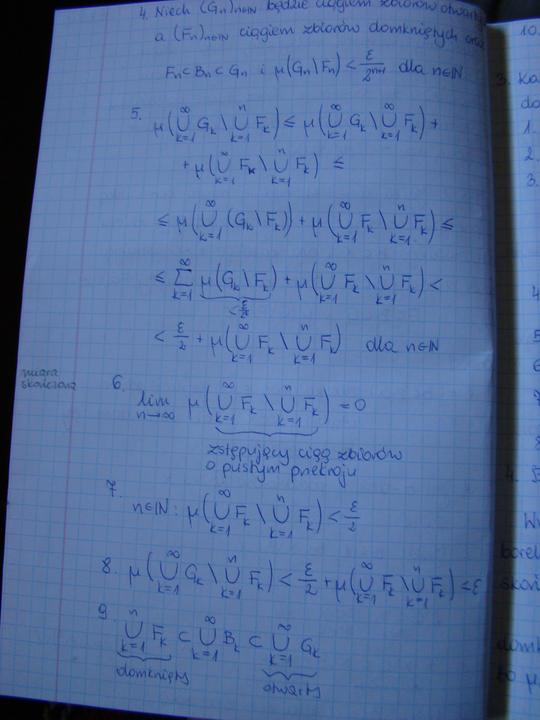 4. Niech (Gₙ)ₙ∈ℕ będzie ciągiem zbiorów
a (Fₙ)ₙ∈ℕ ciągiem zbiorów domkniętych oraz
Fₙ⊂Bₙ⊂Gₙ i μ(Gₙ\Fₙ) < ε/2ⁿ⁺¹ dla n∈ℕ
5. μ(⋃_{k=1}^{∞} Gₖ \ ⋃_{k=1}^{n} Fₖ) ≤ μ(⋃_{k=1}^{∞} Gₖ \ ⋃_{k=1}^{∞} Fₖ) +
+ μ(⋃_{k=1}^{∞} Fₖ \ ⋃_{k=1}^{n} Fₖ) ≤
≤ μ(⋃_{k=1}^{∞} (Gₖ\Fₖ)) + μ(⋃_{k=1}^{∞} Fₖ \ ⋃_{k=1}^{n} Fₖ) ≤
≤ ∑_{k=1}^{∞} μ(Gₖ\Fₖ) + μ(⋃_{k=1}^{∞} Fₖ \ ⋃_{k=1}^{n} Fₖ) <
< ε/2 + μ(⋃_{k=1}^{∞} Fₖ \ ⋃_{k=1}^{n} Fₖ) dla n∈ℕ
miara
skończona
6. lim_{n→∞} μ(⋃_{k=1}^{∞} Fₖ \ ⋃_{k=1}^{n} Fₖ) = 0
zstępujący ciąg zbiorów
o pustym przekroju
7. n∈ℕ: μ(⋃_{k=1}^{∞} Fₖ \ ⋃_{k=1}^{n} Fₖ) < ε/2
8. μ(⋃_{k=1}^{∞} Gₖ \ ⋃_{k=1}^{n} Fₖ) < ε/2 + μ(⋃_{k=1}^{∞} Fₖ \ ⋃_{k=1}^{n} Fₖ) ≤ ε
9. ⋃_{k=1}^{n} Fₖ ⊂ ⋃_{k=1}^{∞} Bₖ ⊂ ⋃_{k=1}^{∞} Gₖ
domknięty otwarty
10.
3. Ka
do
1.
2.
3.